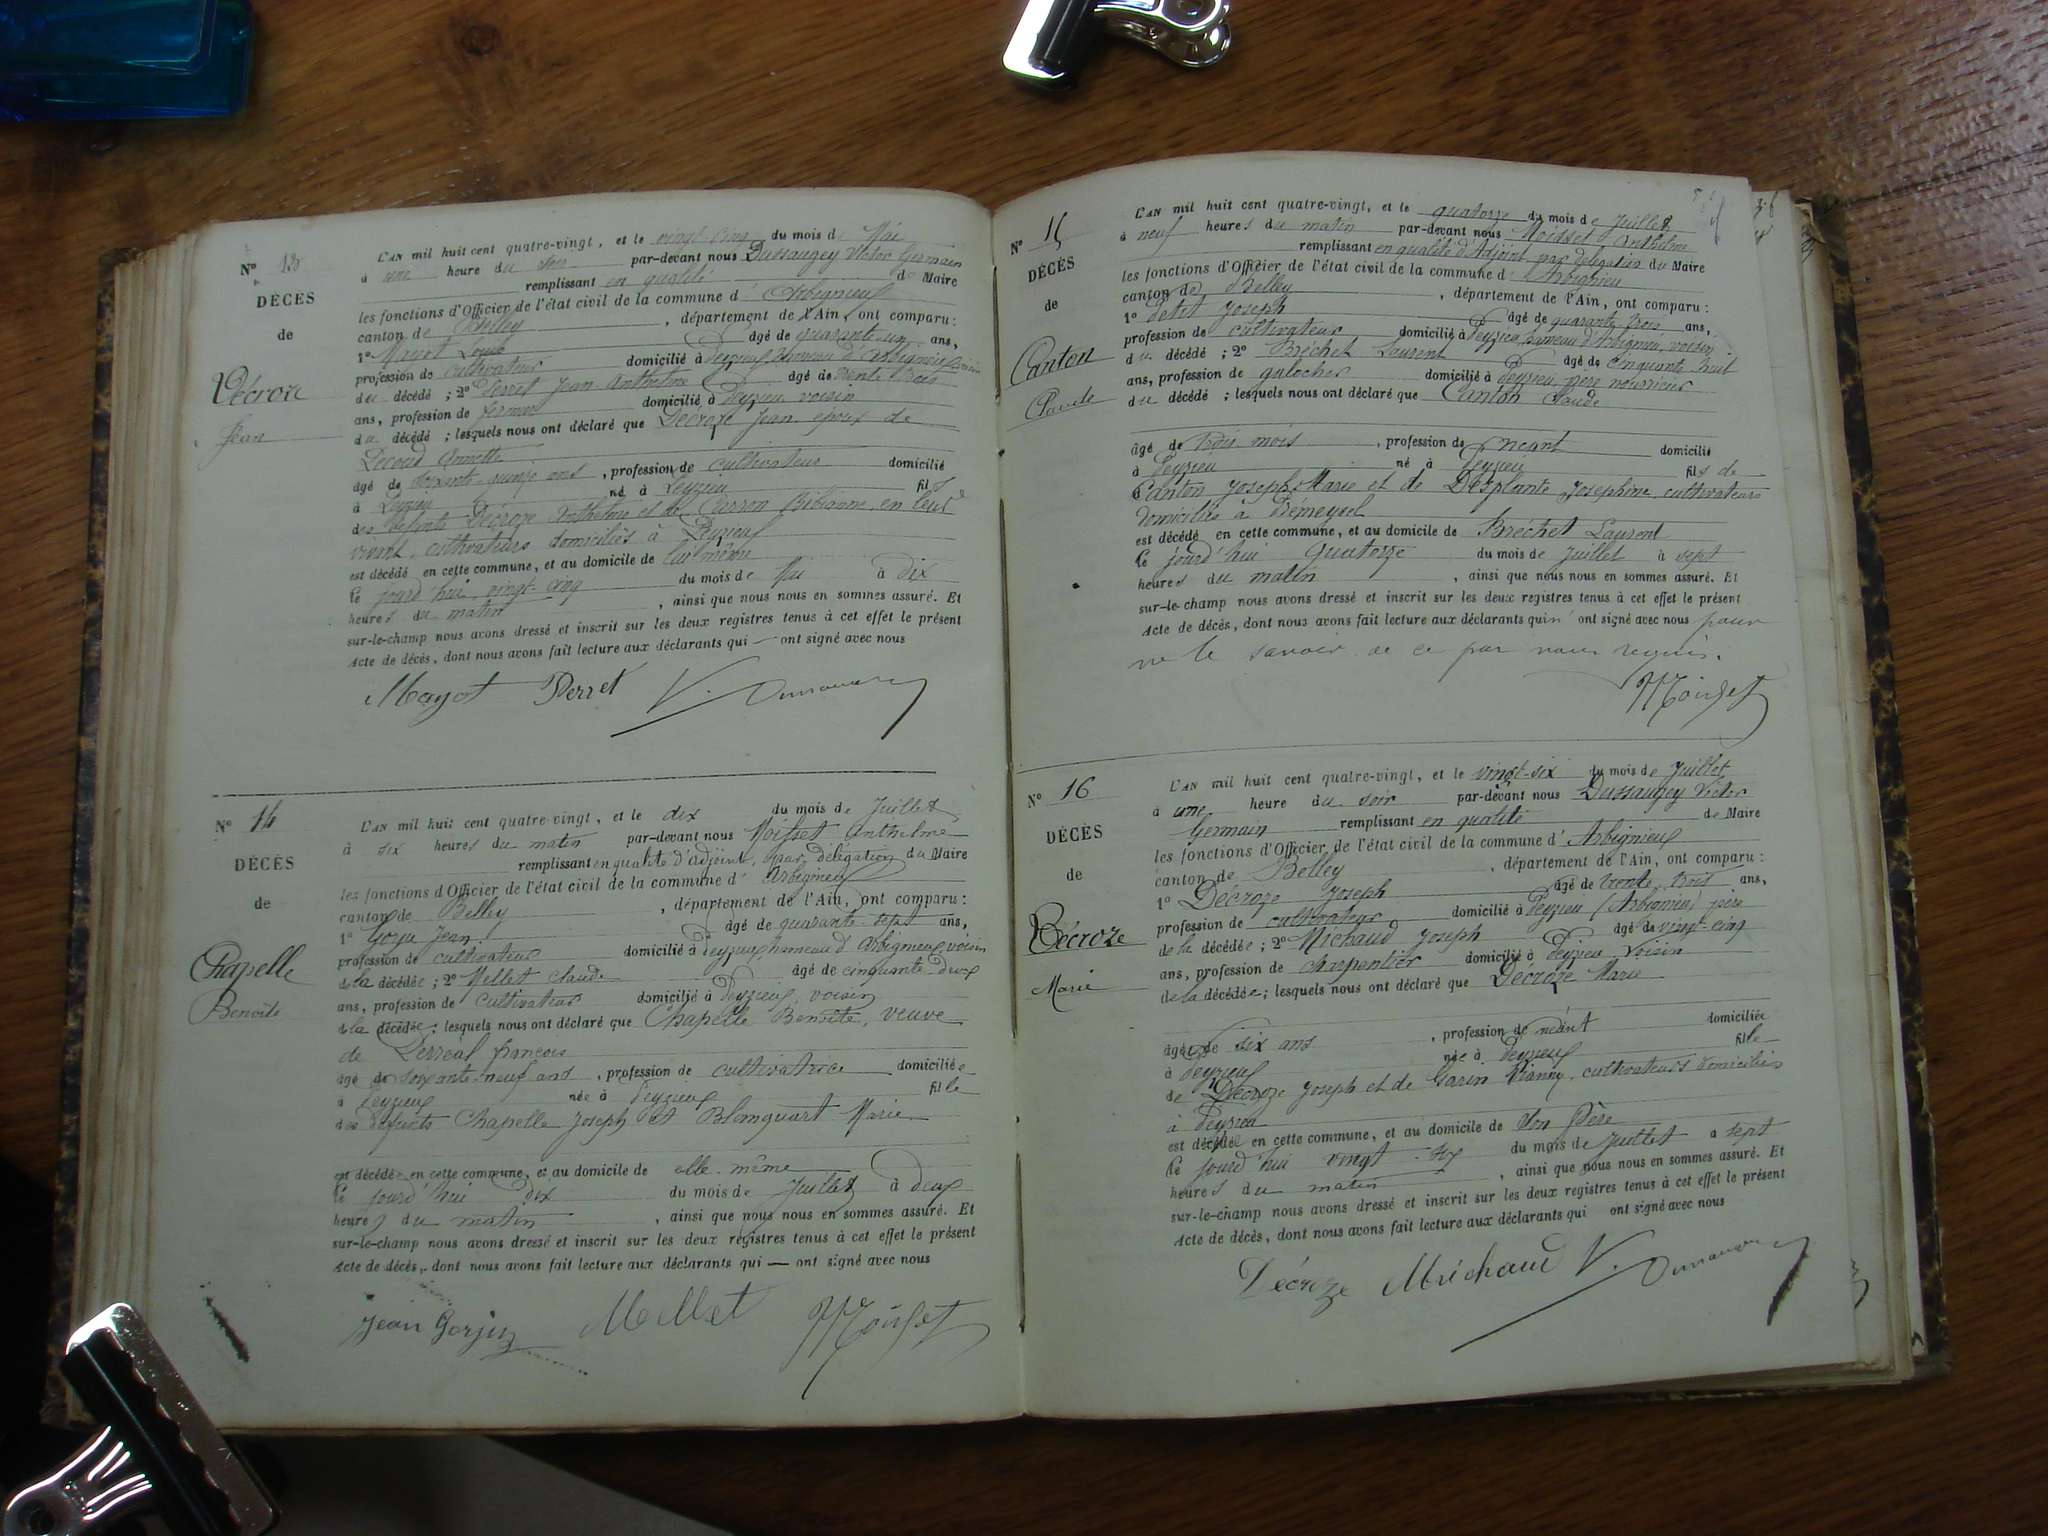 N° 13
DÉCÈS
de
Décroze
Jean
L'AN mil huit cent quatre-vingt, et le vingt-cinq du mois de Mai
à une heure du soir par-devant nous Dussaugey Victor Germain
remplissant en qualité de Maire
les fonctions d'Officier de l'état civil de la commune d'Arbignieu
canton de Belley, département de l'Ain, ont comparu :
1° Mayot Louis âgé de quarante-un ans,
profession de cultivateur domicilié à Peyzieu, hameau d'Arbignieu, voisin
du décédé ; 2° Perret Jean Anthelme âgé de trente trois
ans, profession de domicilié à Peyzieu voisin
du décédé ; lesquels nous ont déclaré que Décroze Jean époux de
Annette
âgé de soixante-quinze ans, profession de cultivateur domicilié
à Peyzieu né à Peyzieu fils
des défunts Décroze Anthelme et de en leur
vivant, cultivateurs domiciliés à Peyzieu
est décédé en cette commune, et au domicile de lui même
le jourd'hui vingt-cinq du mois de Mai à dix
heures du matin, ainsi que nous nous en sommes assuré. Et
sur-le-champ nous avons dressé et inscrit sur les deux registres tenus à cet effet le présent
Acte de décès, dont nous avons fait lecture aux déclarants qui — ont signé avec nous
Mayot Perret V. Dussaugey
N° 14
DÉCÈS
de
Chapelle
Benoîte
L'AN mil huit cent quatre-vingt, et le dix du mois de Juillet
à six heures du matin par-devant nous Moisset Anthelme
remplissant en qualité d'Adjoint, par délégation du Maire
les fonctions d'Officier de l'état civil de la commune d'Arbignieu
canton de Belley, département de l'Ain, ont comparu :
1° Gorju Jean âgé de quarante-sept ans,
profession de cultivateur domicilié à Peyzieu, hameau d'Arbignieu, voisin
de la décédée ; 2° Mellet Claude âgé de cinquante-deux
ans, profession de cultivateur domicilié à Peyzieu, voisin
de la décédée ; lesquels nous ont déclaré que Chapelle Benoîte, veuve
de Derréal françois
âgé de soixante-neuf ans, profession de cultivatrice domiciliée
à Peyzieu née à Peyzieu fille
des défunts Chapelle Joseph et Blanquart Marie
est décédée en cette commune, et au domicile de elle-même
le jourd'hui dix du mois de Juillet à deux
heures du matin, ainsi que nous nous en sommes assuré. Et
sur-le-champ nous avons dressé et inscrit sur les deux registres tenus à cet effet le présent
Acte de décès, dont nous avons fait lecture aux déclarants qui — ont signé avec nous
Jean Gorju Mellet Moisset
N° 15
DÉCÈS
de
Canton
Claude
L'AN mil huit cent quatre-vingt, et le quatorze du mois de Juillet
à neuf heures du matin par-devant nous Moisset Anthelme
remplissant en qualité d'Adjoint, par délégation du Maire
les fonctions d'Officier de l'état civil de la commune d'Arbignieu
canton de Belley, département de l'Ain, ont comparu :
1° Petit Joseph âgé de quarante trois ans,
profession de cultivateur domicilié à Peyzieu, hameau d'Arbignieu, voisin
du décédé ; 2° Bréchet Laurent âgé de cinquante huit
ans, profession de galocher domicilié à Peyzieu père nourricier
du décédé ; lesquels nous ont déclaré que Canton Claude
âgé de trois mois, profession de néant domicilié
à Peyzieu né à Peyzieu fils de
Canton Joseph Marie et de Desplante Joséphine cultivateurs
domiciliés à
est décédé en cette commune, et au domicile de Bréchet Laurent
le jourd'hui quatorze du mois de Juillet à sept
heures du matin, ainsi que nous nous en sommes assuré. Et
sur-le-champ nous avons dressé et inscrit sur les deux registres tenus à cet effet le présent
Acte de décès, dont nous avons fait lecture aux déclarants qui n'ont signé avec nous pour
ne le savoir de ce par nous requis.
Moisset
N° 16
DÉCÈS
de
Décroze
Marie
L'AN mil huit cent quatre-vingt, et le vingt-six du mois de Juillet
à une heure du soir par-devant nous Dussaugey Victor
Germain remplissant en qualité de Maire
les fonctions d'Officier de l'état civil de la commune d'Arbignieu
canton de Belley, département de l'Ain, ont comparu :
1° Décroze Joseph âgé de trente trois ans,
profession de cultivateur domicilié à Peyzieu (Arbignieu) père
de la décédée ; 2° Michaud Joseph âgé de vingt-cinq
ans, profession de charpentier domicilié à Peyzieu voisin
de la décédée ; lesquels nous ont déclaré que Décroze Marie
âgée de six ans, profession de néant domiciliée
à Peyzieu née à Peyzieu fille
de Décroze Joseph et de Garin Vianny, cultivateurs domiciliés
à Peyzieu
est décédée en cette commune, et au domicile de son Père
le jourd'hui vingt-six du mois de Juillet à sept
heures du matin, ainsi que nous nous en sommes assuré. Et
sur-le-champ nous avons dressé et inscrit sur les deux registres tenus à cet effet le présent
Acte de décès, dont nous avons fait lecture aux déclarants qui ont signé avec nous
Décroze Michaud V. Dussaugey